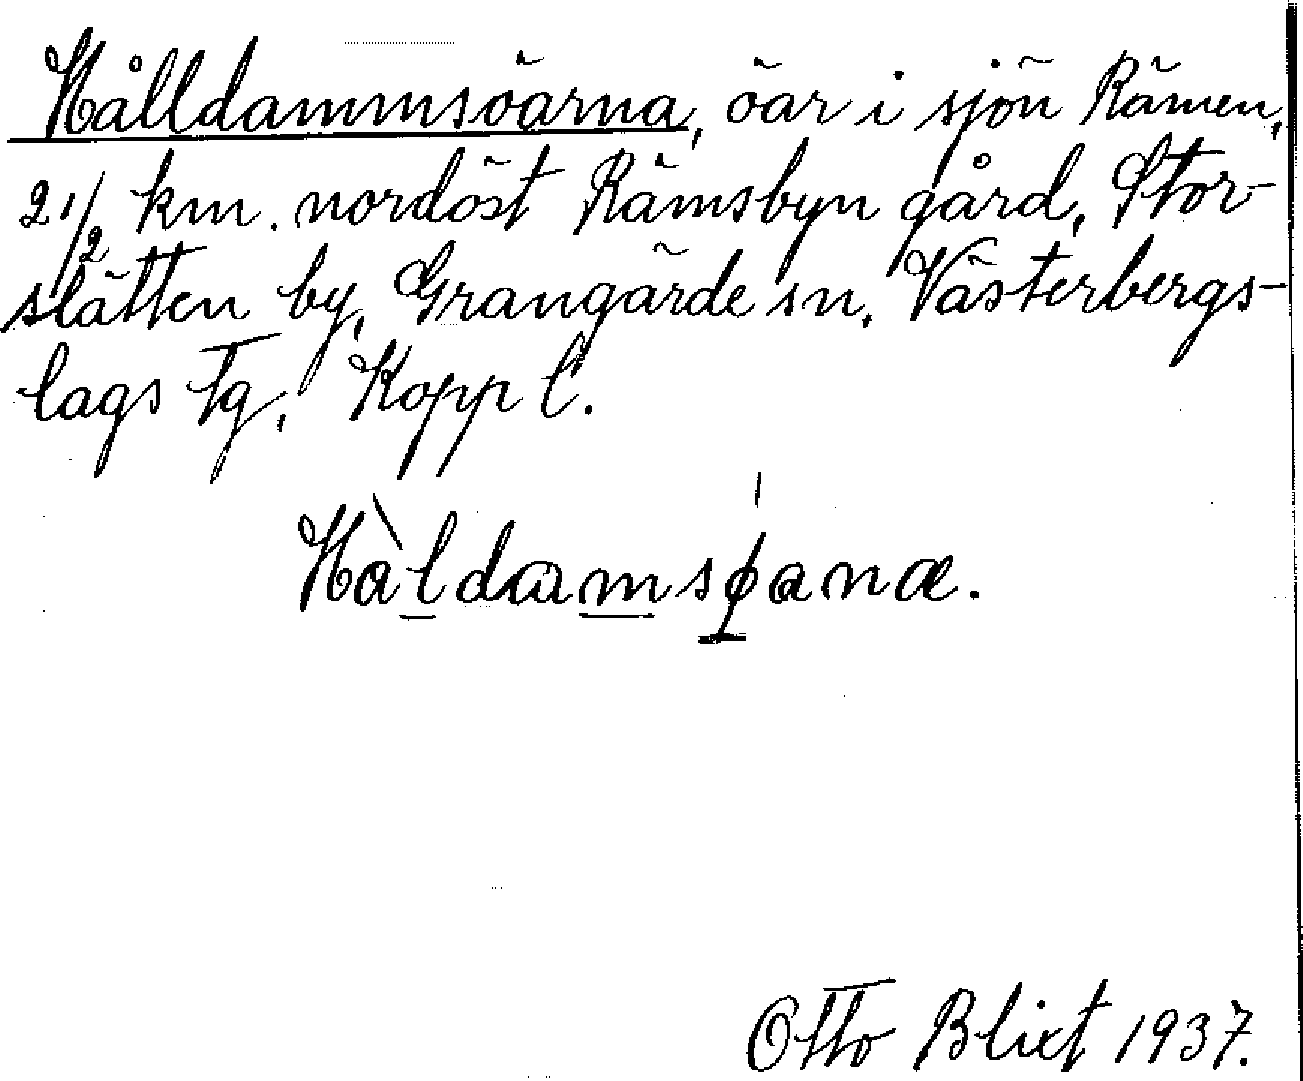 Hålldammsöarna, öar i sjön Rämen,
2 1/2 km. nordöst Rämsbyn gård, Stor-
slätten by, Grangärde sn, Västerbergs-
lags Tg, Kopp l.
Hàldamsøana.
Otto Blixt 1937.